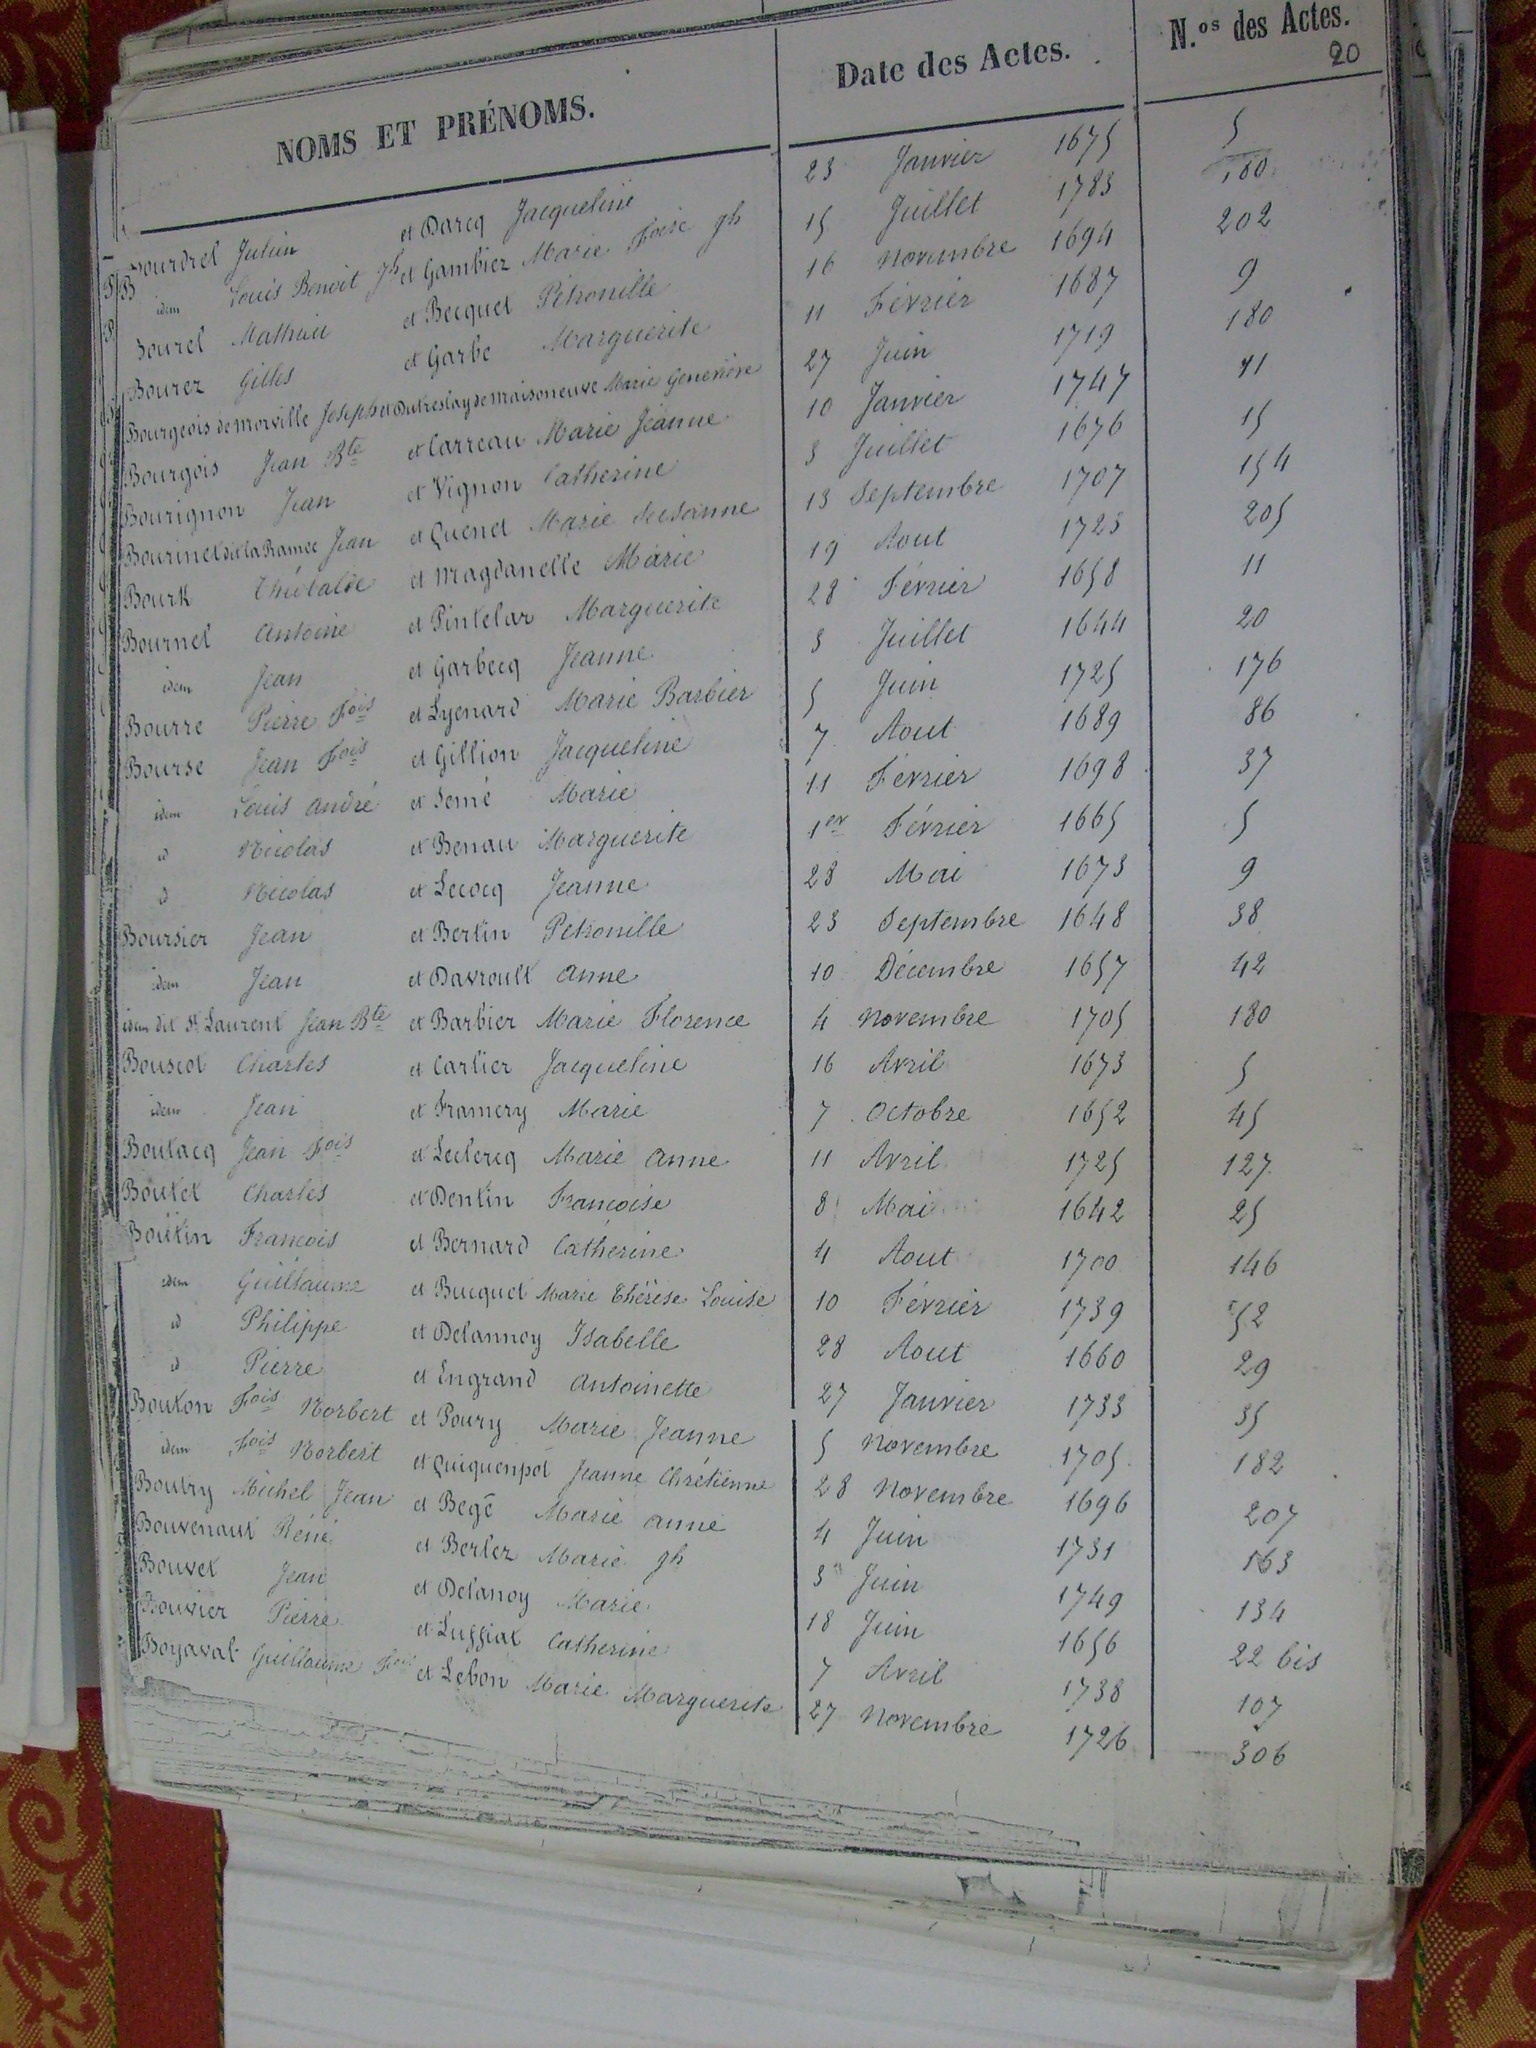 NOMS ET PRÉNOMS. Date des Actes. N.os des Actes.
20
Bourdrel Julien et Darcq Jacqueline 23 Janvier 1675 5
idem Louis Benoit gh et Gambier Marie Foise gh 15 Juillet 1783 100
Bourel Mathieu et Becquet Pétronille 16 Novembre 1694 202
Bourez Gilles et Garbe Marguerite 11 Février 1687 9
Bourgeois de Morville Joseph et Dutreslay de Maisoneuve Marie Geneviève 27 Juin 1719 180
Bourgois Jean Bte et Carreau Marie Jeanne 10 Janvier 1747 11
Bourignon Jean et Vignon Catherine 3 Juillet 1676 15
Bourinet dit la Ramée Jean et Quenet Marie Susanne 13 Septembre 1707 154
Bourk Thibalde et Magdanelle Marie 19 Aout 1723 205
Bournel Antoine et Pintelar Marguerite 28 Février 1658 11
idem Jean et Garbecq Jeanne 3 Juillet 1644 20
Bourre Pierre Fois et Lyenard Marie Barbier 5 Juin 1725 176
Bourse Jean Fois et Gillion Jacqueline 7 Aout 1689 86
idem Louis André et Semé Marie 11 Février 1698 37
id Nicolas et Benau Marguerite 1er Février 1665 5
id Nicolas et Lecocq Jeanne 28 Mai 1673 9
Boursier Jean et Bertin Pétronille 23 Septembre 1648 38
idem Jean et Davroult Anne 10 Décembre 1657 42
idem dit St Laurent Jean Bte et Barbier Marie Florence 4 Novembre 1705 180
Bouscot Charles et Carlier Jacqueline 16 Avril 1673 5
idem Jean et Framery Marie 7 Octobre 1652 45
Boutacq Jean Fois et Leclercq Marie Anne 11 Avril 1725 127
Boutet Charles et Dentin Francoise 8 Mai 1642 25
Boutin Francois et Bernard Catherine 4 Aout 1700 146
idem Guillaume et Bucquet Marie Thérèse Louise 10 Février 1739 52
id Philippe et Delannoy Isabelle 28 Aout 1660 29
id Pierre et Engrand Antoinette 27 Janvier 1733 35
Bouton Fois Norbert et Poury Marie Jeanne 5 Novembre 1705 182
idem Fois Norbert et Quiquenpot Jeanne Chrétienne 28 Novembre 1696 207
Boutry Michel Jean et Begé Marie Anne 4 Juin 1731 163
Bouvenaut Réné et Berlez Marie gh 3 Juin 1749 134
Bouvet Jean et Delanoy Marie 18 Juin 1656 22 bis
Bouvier Pierre et Luggiat Catherine 7 Avril 1738 107
Boyaval Guillaume Fois et Lebon Marie Marguerite 27 Novembre 1726 306